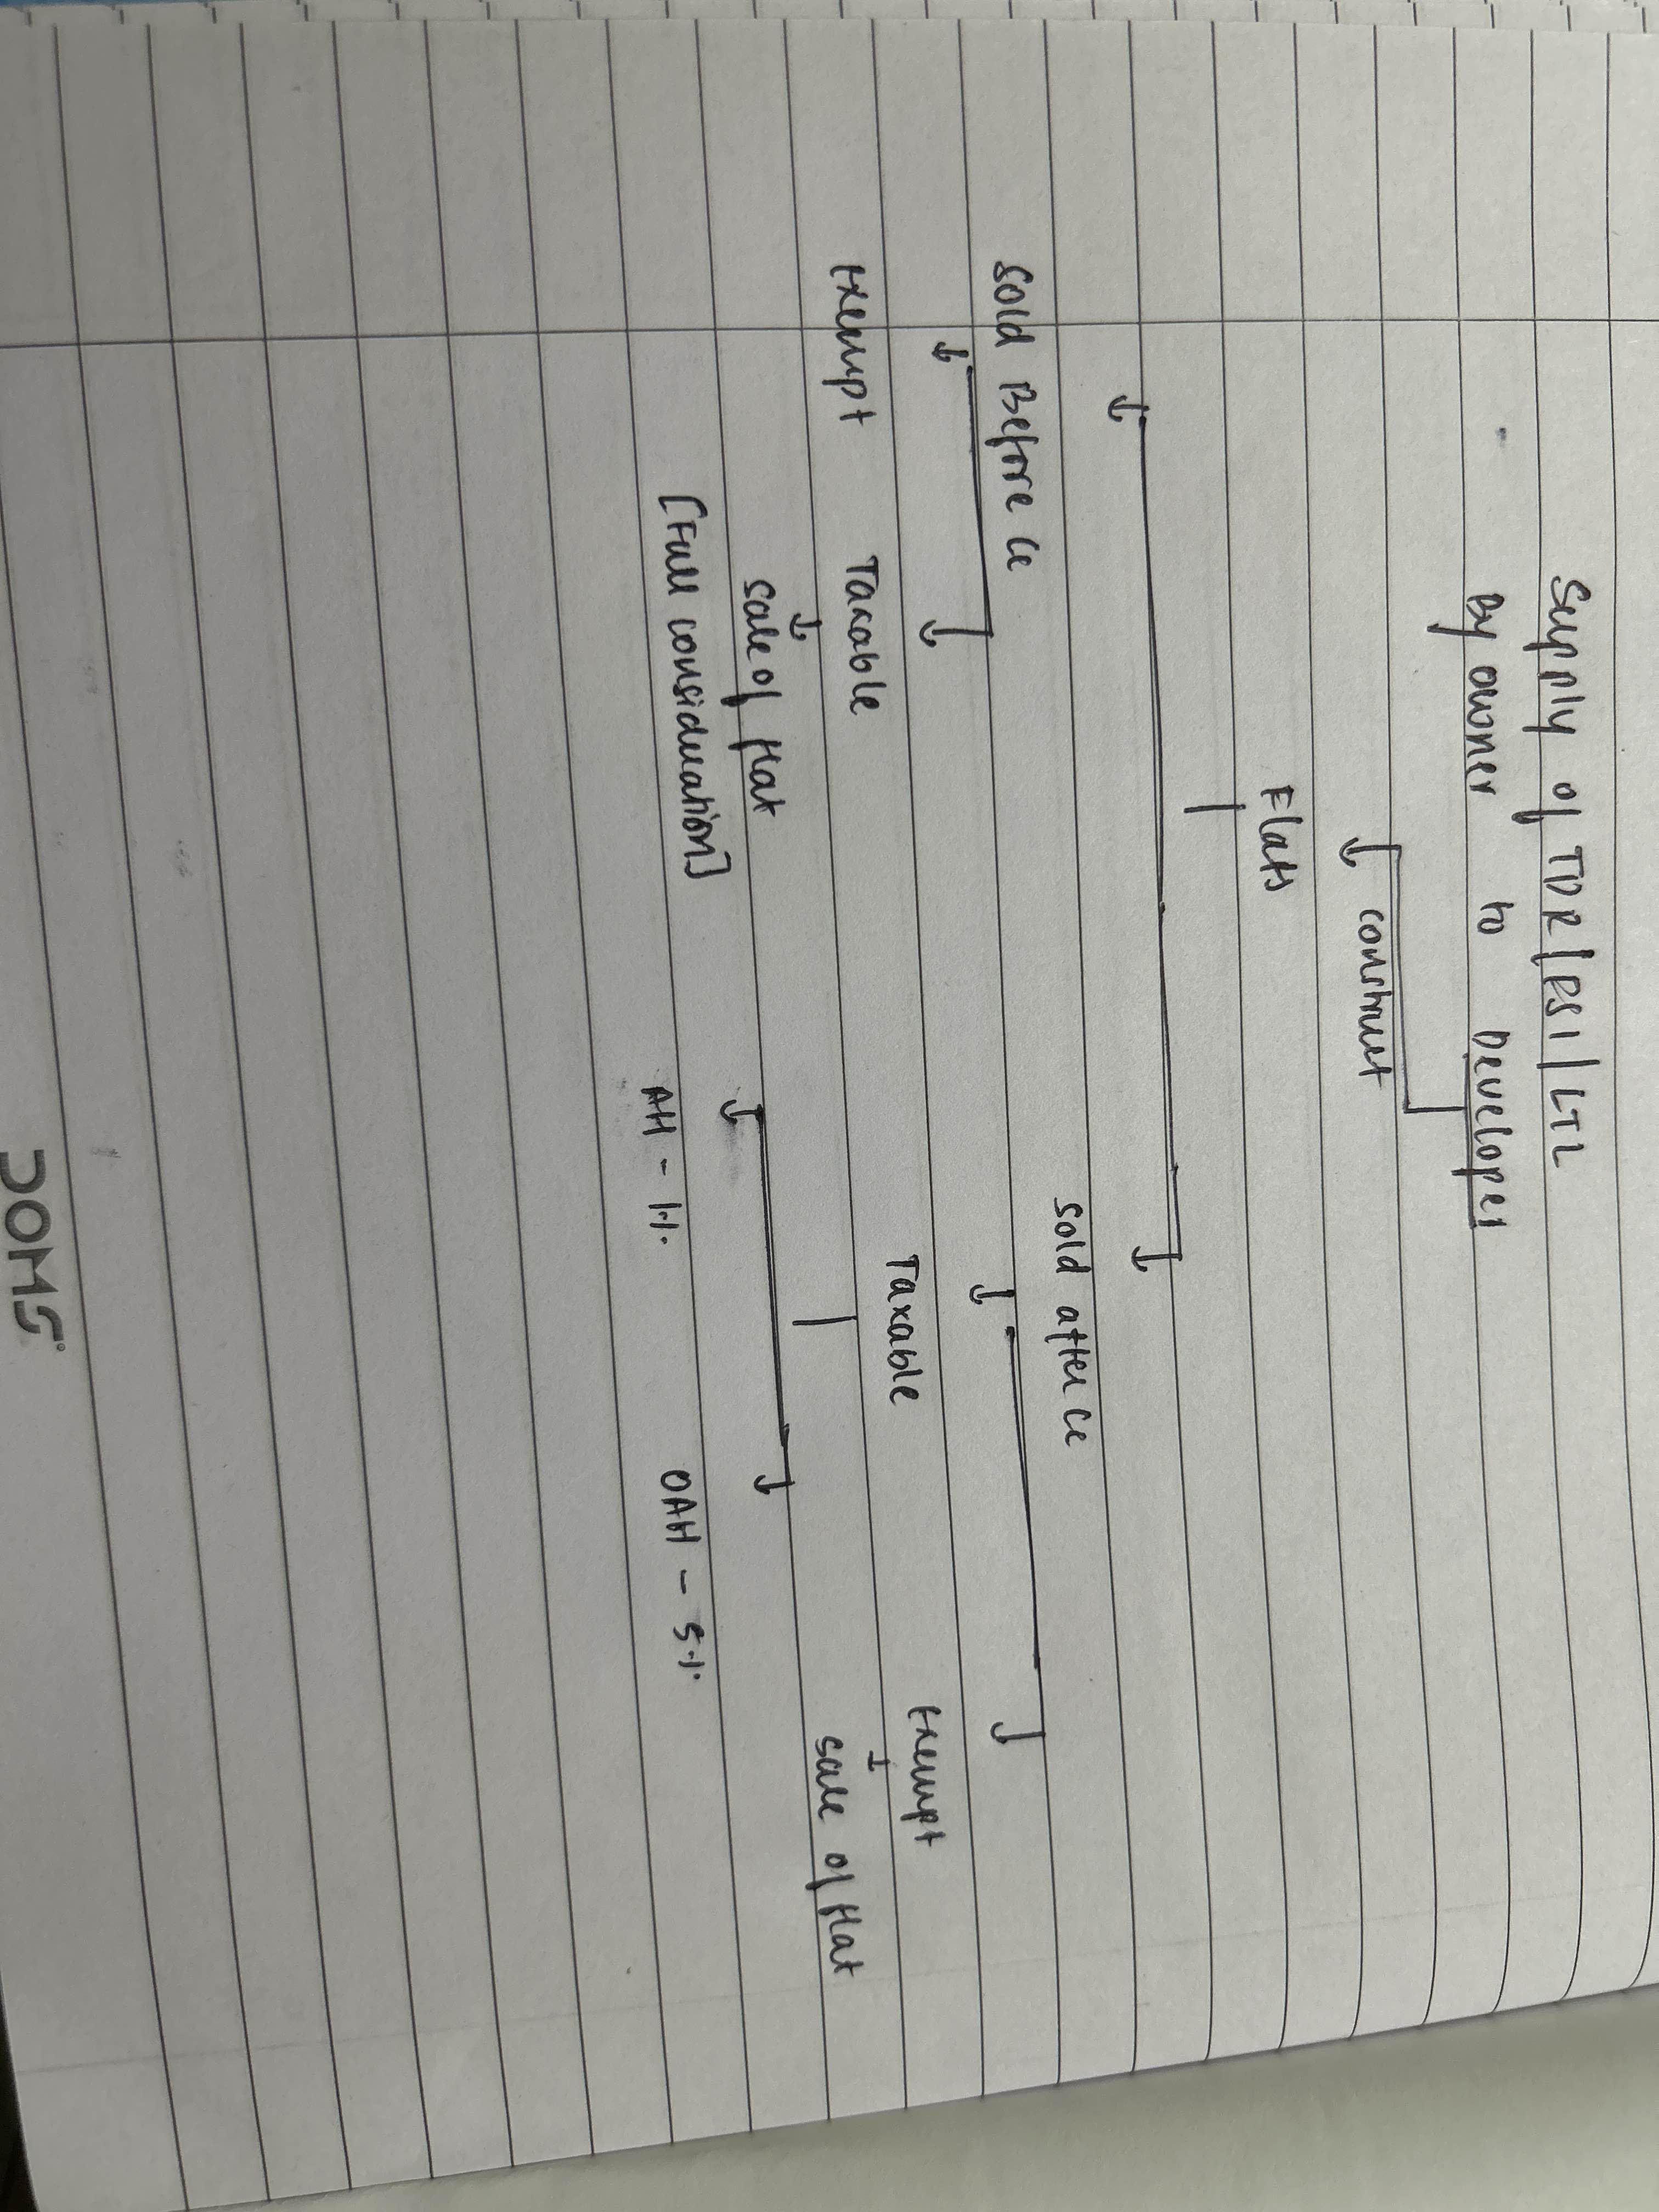 Supply of TDR/FSI/LTL
By owner to Developer
construct
Flats
Sold Before CC
Sold after CC
Exempt
Taxable
Taxable
Exempt
Sale of flat
Sale of flat
[Full consideration]
AH - 1%
OAH - 5%
DOMS